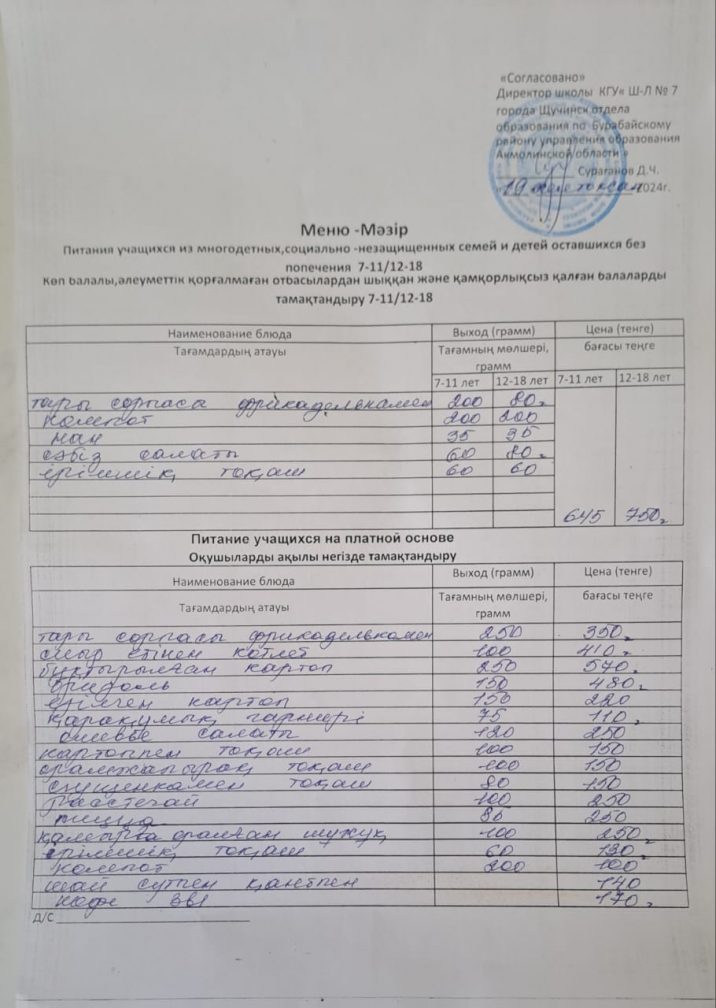 «Согласовано»
Директор школы КГУ« Ш-Л № 7
города Щучинск отдела
образования по Бурабайскому
району управления образования
Акмолинской области »
Сураганов Д.Ч.
« 19 желтоқсан 2024г.
Меню -Мәзір
Питания учащихся из многодетных,социально -незащищенных семей и детей оставшихся без
попечения 7-11/12-18
Көп балалы,әлеуметтік қорғалмаған отбасылардан шыққан және қамқорлықсыз қалған балаларды
тамақтандыру 7-11/12-18
Наименование блюда Выход (грамм) Цена (тенге)
Тағамдардың атауы Тағамның мөлшері, грамм бағасы теңге
7-11 лет 12-18 лет 7-11 лет 12-18 лет
тары сорпаса фрикаделькамен 200 80
компот 200 200
нан 35 35
сәбіз салаты 60 80
ірімшік тоқаш 60 60
645 750
Питание учащихся на платной основе
Оқушыларды ақылы негізде тамақтандыру
Наименование блюда Выход (грамм) Цена (тенге)
Тағамдардың атауы Тағамның мөлшері, грамм бағасы теңге
тары сорпасы фрикаделькамен 250 350
сиыр етінен котлет 100 410
бұқтырылған картоп 250 570
150 480
езілген картоп 150 220
қарақұмық гарнері 75 110
оливье салаты 120 250
картоппен тоқаш 100 150
орамжапырақ тоқаш 100 150
сгущенкамен тоқаш 80 150
расстегай 100 250
пицца 85 250
қамырға оралған шұжұқ 100 250
ірімшік тоқаш 60 130
компот 200 100
шай сүтпен қантпен 140
кофе 3в1 170
Д/С